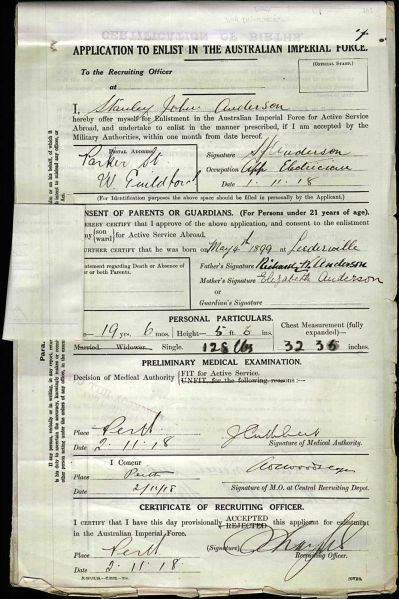 CERTIFICATION OF BIRTHS
APPLICATION TO ENLIST IN THE AUSTRALIAN IMPERIAL FORCE.
To the Recruiting Officer
(OFFICIAL STAMP.)
at
I, Stanley John Anderson
hereby offer myself for Enlistment in the Australian Imperial Force for Active Service
Abroad, and undertake to enlist in the manner prescribed, if I am accepted by the
Military Authorities, within one month from date hereof.
POSTAL ADDRESS
Parker St.
W. Guildford
Signature SJAnderson
Occupation App Electrician
Date 1.11.18
(For Identification purposes the above space should be filled in personally by the Applicant.)
CONSENT OF PARENTS OR GUARDIANS. (For Persons under 21 years of age).
CERTIFY that I approve of the above application, and consent to the enlistment
my {son ward} for Active Service Abroad.
FURTHER CERTIFY that he was born May 6th 1899 at Leederville
Statement regarding Death or Absence of
or both Parents.
Father's Signature Richard W. Anderson
Mother's Signature Elizabeth Anderson
or
Guardian's Signature
PERSONAL PARTICULARS.
19 yrs. 6 mos. Height- 5 ft. 6 ins.
Chest Measurement (fully expanded)-
Married. Widower. Single. 128 lbs 32 35 inches.
PRELIMINARY MEDICAL EXAMINATION.
Decision of Medical Authority {FIT for Active Service.
UNFIT, for the following reasons :-
Place Perth
Date 2.11.18
JCuthbert
Signature of Medical Authority.
I Concur
Place Perth
Date 2/11/18
Signature of M.O. at Central Recruiting Depot.
CERTIFICATE OF RECRUITING OFFICER.
I CERTIFY that I have this day provisionally ACCEPTED REJECTED this applicant for enlistment
in the Australian Imperial Force.
Place Perth
Date 2.11.18
(Signature)
Recruiting Officer.